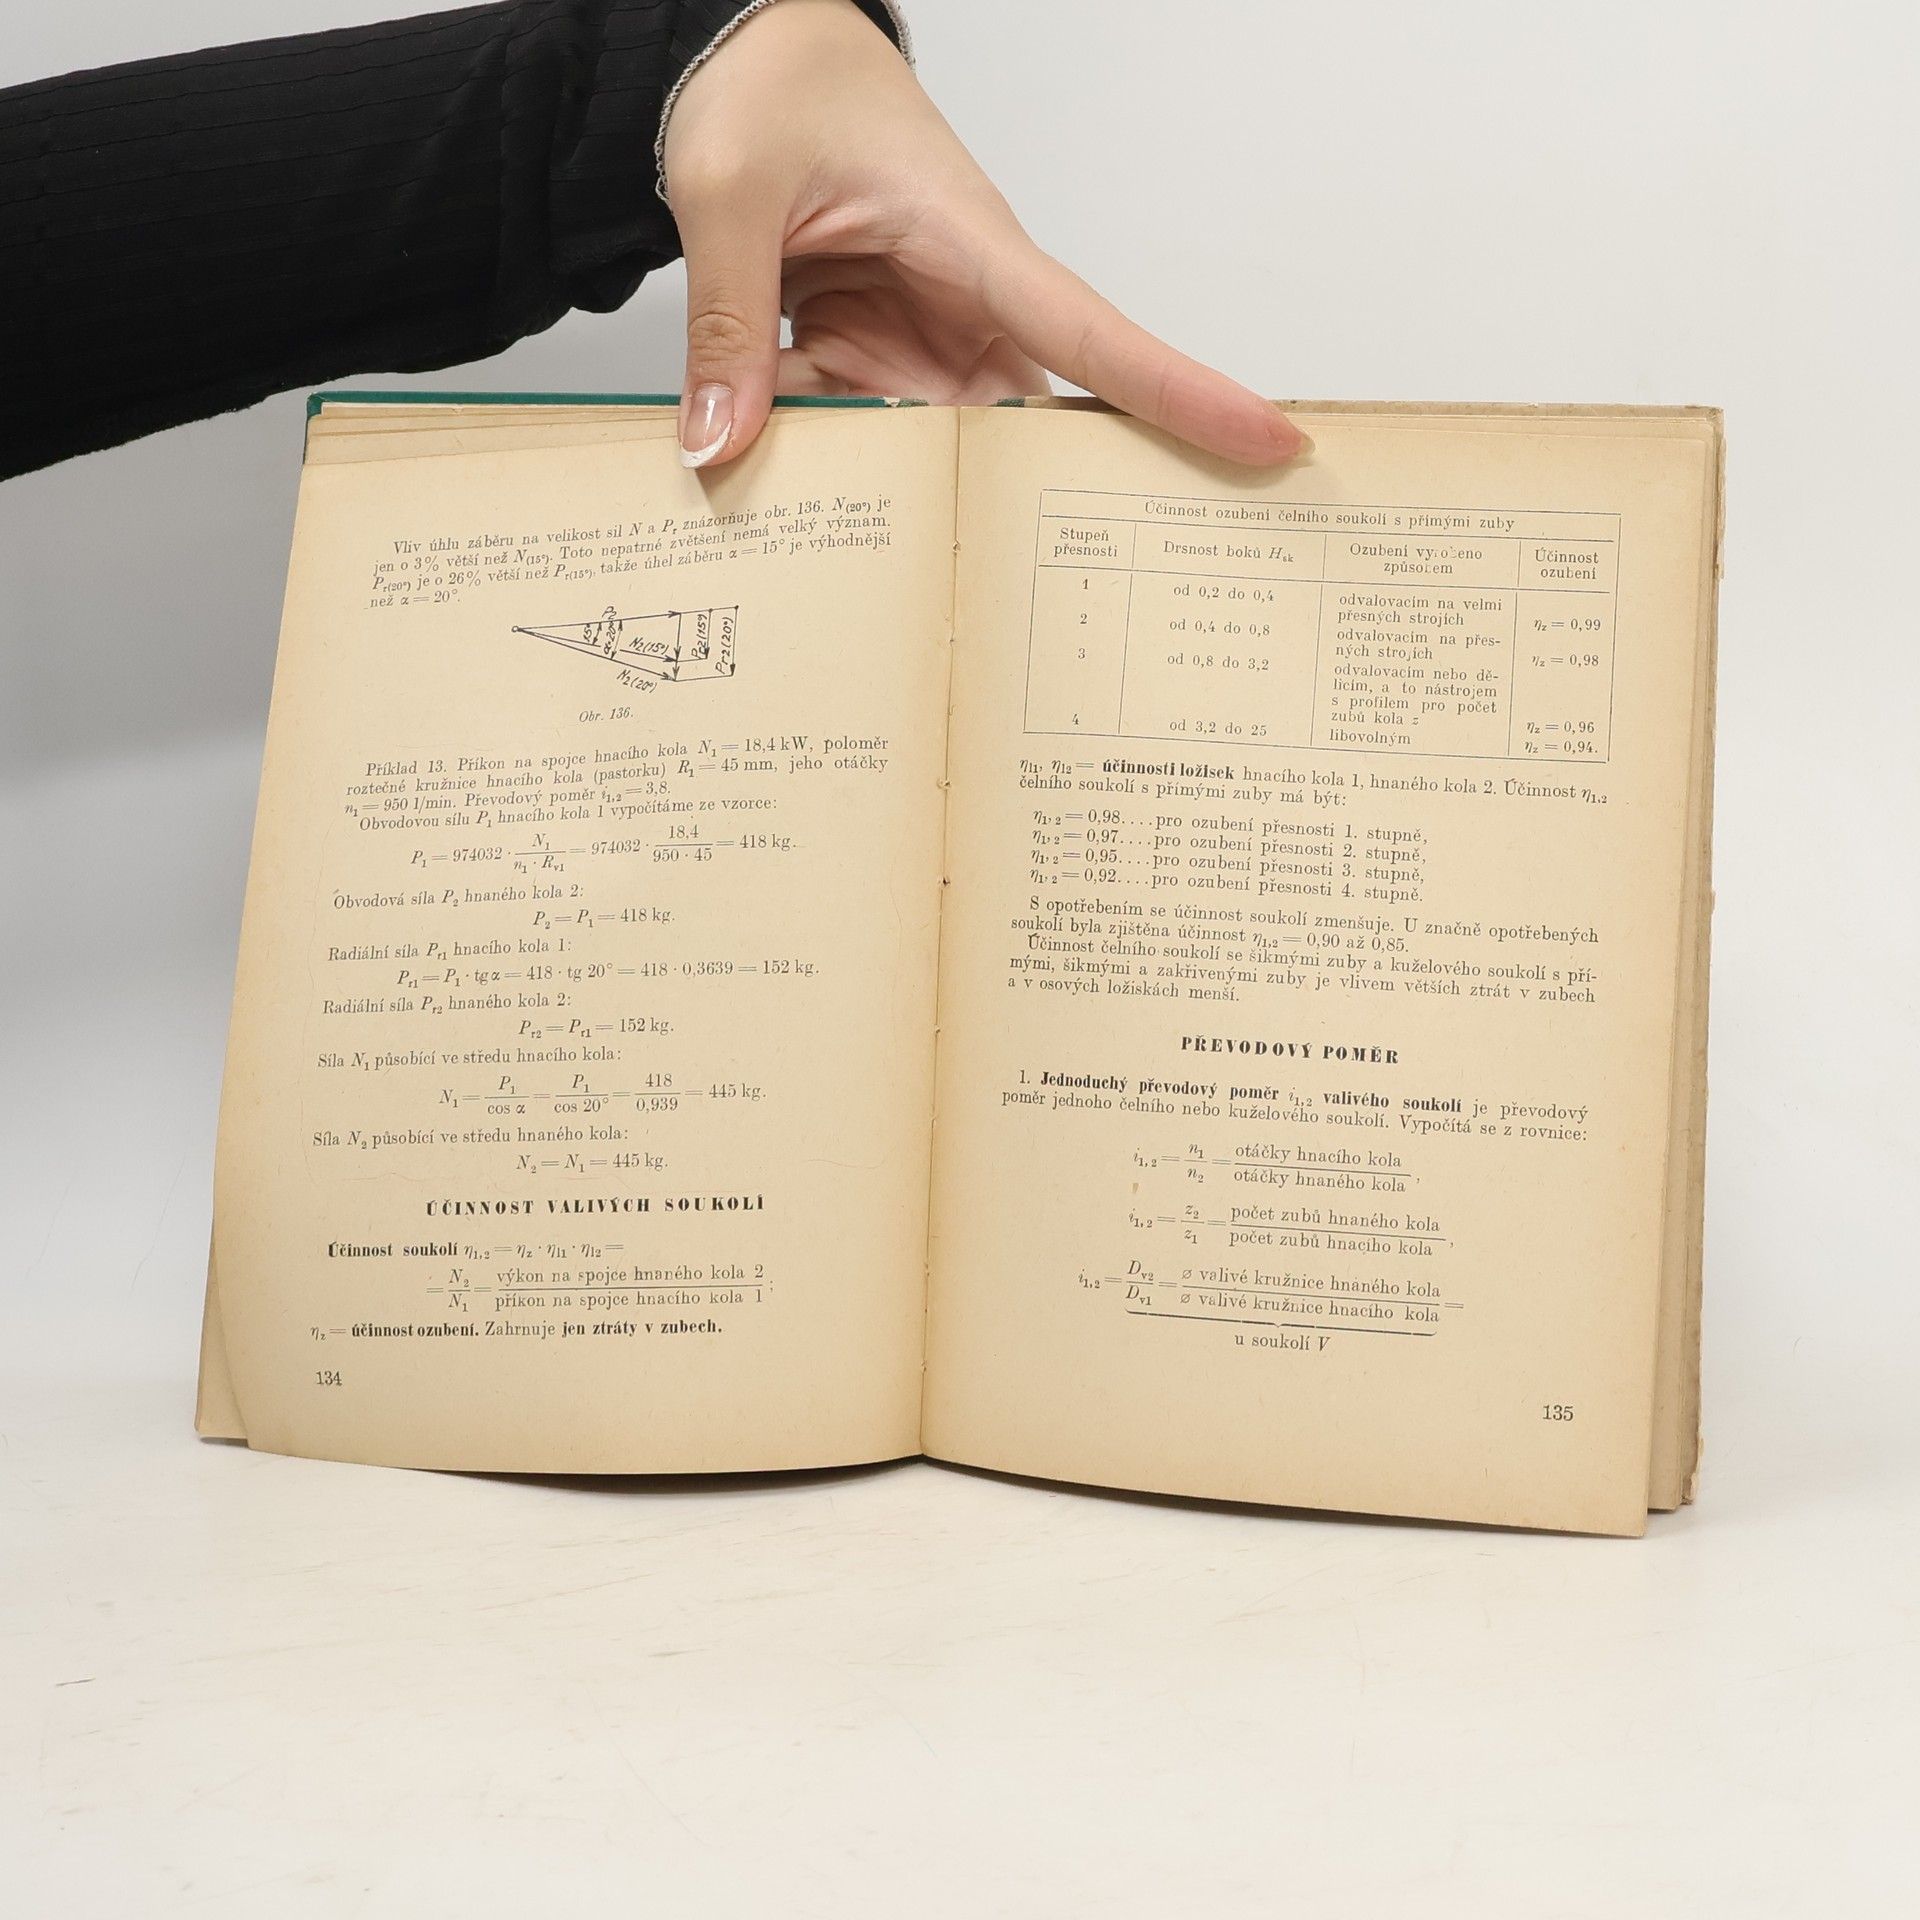 Vliv úhlu záběru na velikost sil N a Pr znázorňuje obr. 136. N(20°) je
jen o 3% větší než N(15°). Toto nepatrné zvětšení nemá velký význam.
Pr(20°) je o 26% větší než Pr(15°), takže úhel záběru α = 15° je výhodnější
než α = 20°.
P2
15°
α=20°
N2(15°)
N2(20°)
Pr2(15°)
Pr2(20°)
Obr. 136.
Příklad 13. Příkon na spojce hnacího kola N1 = 18,4 kW, poloměr
roztečné kružnice hnacího kola (pastorku) R1 = 45 mm, jeho otáčky
n1 = 950 1/min. Převodový poměr i1,2 = 3,8.
Obvodovou sílu P1 hnacího kola 1 vypočítáme ze vzorce:
P1 = 974032 · N1 / (n1 · Rv1) = 974032 · 18,4 / (950 · 45) = 418 kg.
Obvodová síla P2 hnaného kola 2:
P2 = P1 = 418 kg.
Radiální síla Pr1 hnacího kola 1:
Pr1 = P1 · tg α = 418 · tg 20° = 418 · 0,3639 = 152 kg.
Radiální síla Pr2 hnaného kola 2:
Pr2 = Pr1 = 152 kg.
Síla N1 působící ve středu hnacího kola:
N1 = P1 / cos α = P1 / cos 20° = 418 / 0,939 = 445 kg.
Síla N2 působící ve středu hnaného kola:
N2 = N1 = 445 kg.
ÚČINNOST VALIVÝCH SOUKOLÍ
Účinnost soukolí η1,2 = ηz · ηl1 · ηl2 =
= N2 / N1 = výkon na spojce hnaného kola 2 / příkon na spojce hnacího kola 1 ;
ηz = účinnost ozubení. Zahrnuje jen ztráty v zubech.
134
Účinnost ozubení čelního soukolí s přímými zuby
Stupeň přesnosti | Drsnost boků Hsk | Ozubení vyrobeno způsobem | Účinnost ozubení
1 | od 0,2 do 0,4 | odvalovacím na velmi
přesných strojích | ηz = 0,99
2 | od 0,4 do 0,8 | odvalovacím na přes-
ných strojích | ηz = 0,98
3 | od 0,8 do 3,2 | odvalovacím nebo dě-
licím, a to nástrojem
s profilem pro počet
zubů kola z | ηz = 0,96
4 | od 3,2 do 25 | libovolným | ηz = 0,94.
ηl1, ηl2 = účinnosti ložisek hnacího kola 1, hnaného kola 2. Účinnost η1,2
čelního soukolí s přímými zuby má být:
η1,2 = 0,98....pro ozubení přesnosti 1. stupně,
η1,2 = 0,97....pro ozubení přesnosti 2. stupně,
η1,2 = 0,95....pro ozubení přesnosti 3. stupně,
η1,2 = 0,92....pro ozubení přesnosti 4. stupně.
S opotřebením se účinnost soukolí zmenšuje. U značně opotřebených
soukolí byla zjištěna účinnost η1,2 = 0,90 až 0,85.
Účinnost čelního soukolí se šikmými zuby a kuželového soukolí s pří-
mými, šikmými a zakřivenými zuby je vlivem větších ztrát v zubech
a v osových ložiskách menší.
PŘEVODOVÝ POMĚR
1. Jednoduchý převodový poměr i1,2 valivého soukolí je převodový
poměr jednoho čelního nebo kuželového soukolí. Vypočítá se z rovnice:
i1,2 = n1 / n2 = otáčky hnacího kola / otáčky hnaného kola ,
i1,2 = z2 / z1 = počet zubů hnaného kola / počet zubů hnacího kola ,
i1,2 = Dv2 / Dv1 = ⌀ valivé kružnice hnaného kola / ⌀ valivé kružnice hnacího kola =
u soukolí V
135